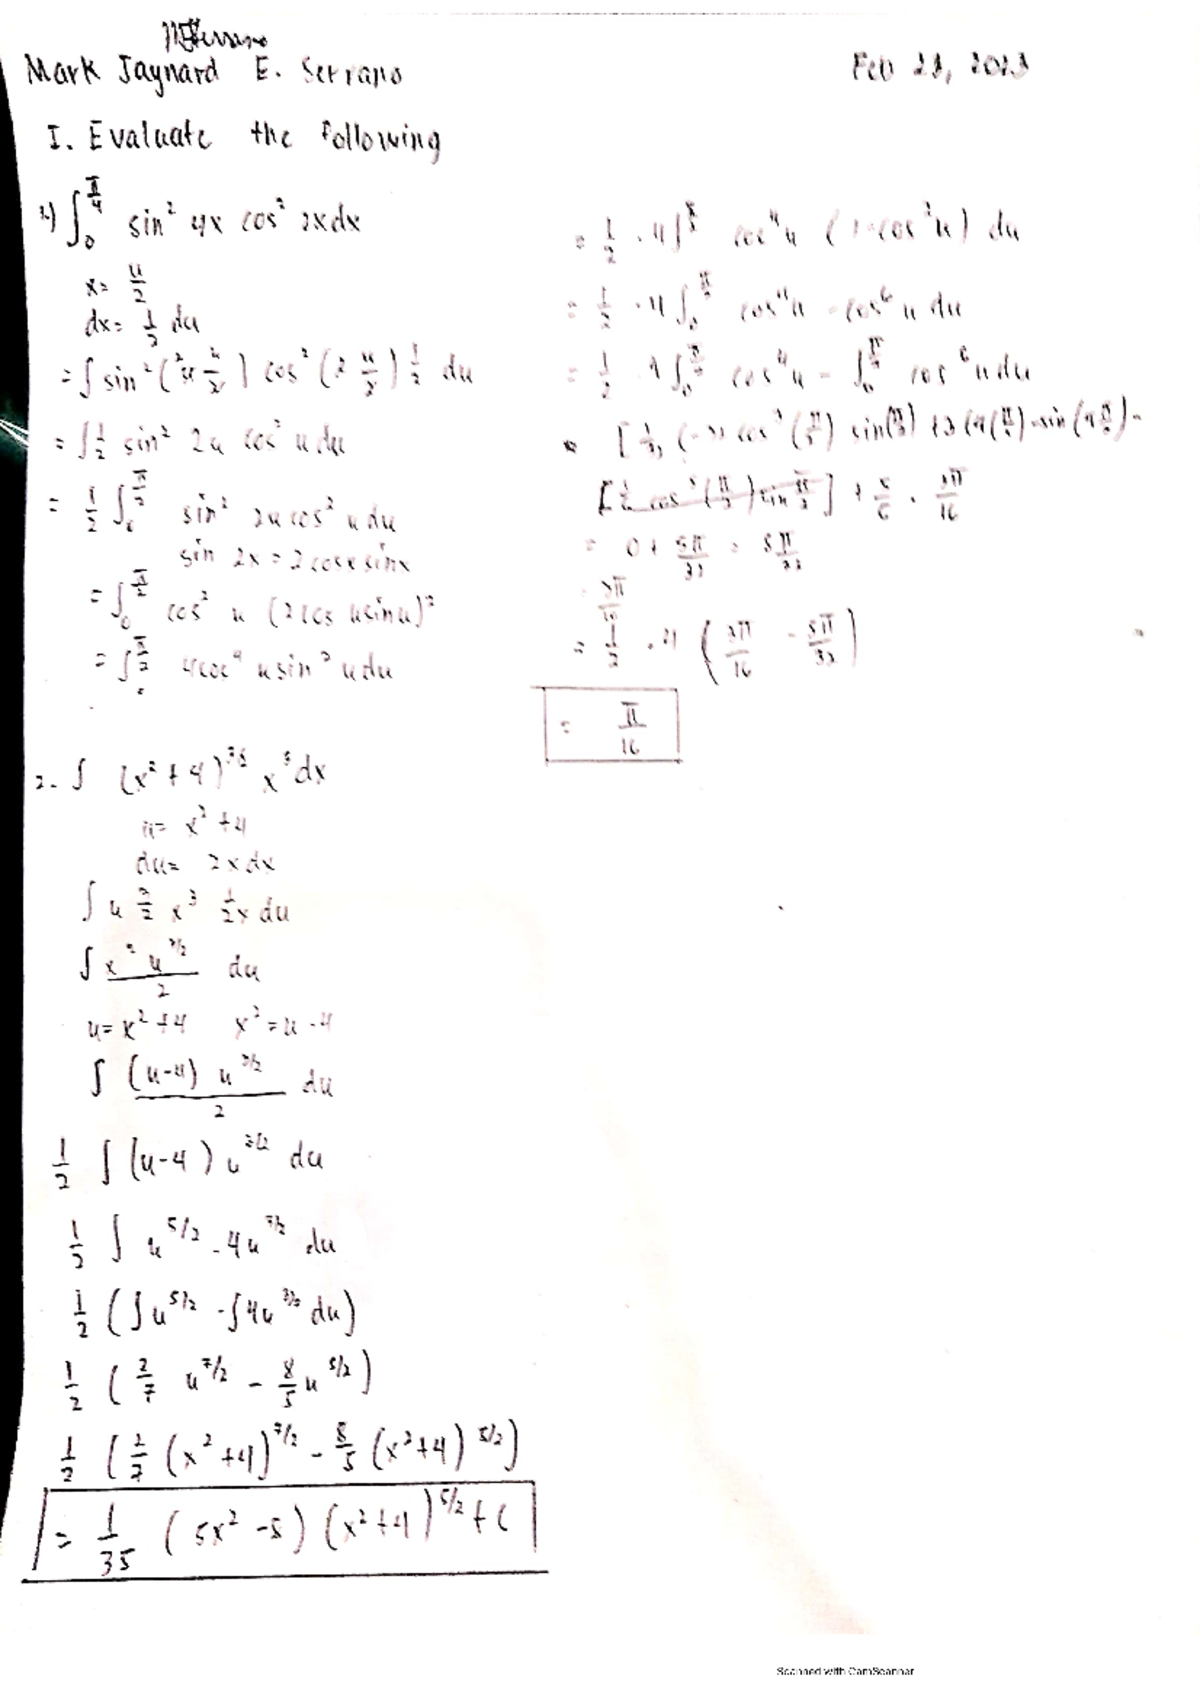 Mark Jaynard E. Serrano
Feb 23, 2023
I. Evaluate the following
∫₀^(π/4) sin² 4x cos² 2x dx
x = u/2
dx = 1/2 du
= ∫ sin² (4 u/2) cos² (2 u/2) 1/2 du
= ∫ 1/2 sin² 2u cos² u du
= 1/2 ∫₀^(π/2) sin² 2u cos² u du
sin 2x = 2 cosx sinx
= ∫₀^(π/2) cos² u (2 cos u sin u)²
= ∫₀^(π/2) 4cos⁴ u sin² u du
= 1/2 · 4 ∫ cos⁴u (1-cos²u) du
= 1/2 · 4 ∫₀^(π/2) cos⁴u - cos⁶ u du
= 1/2 · 4 ∫₀^(π/2) cos⁴u - ∫₀^(π/2) cos⁶ u du
+ 5/6 · 3π/16
= 0 + 5π/32 = 5π/32
3π/16
= 1/2 · 4 (3π/16 - 5π/32)
= π/16
2. ∫ (x² + 4)^(3/2) x³ dx
u = x² + 4
du = 2x dx
∫ u 3/2 x³ 1/2x du
∫ x² u^(3/2) / 2 du
u = x² + 4 x² = u - 4
∫ (u-4) u^(3/2) / 2 du
1/2 ∫ (u-4) u^(3/2) du
1/2 ∫ u^(5/2) - 4u^(3/2) du
1/2 (∫u^(5/2) - ∫4u^(3/2) du)
1/2 (2/7 u^(7/2) - 8/5 u^(5/2))
1/2 (2/7 (x²+4)^(7/2) - 8/5 (x²+4)^(5/2))
= 1/35 (5x² - 8) (x²+4)^(5/2) + C
Scanned with CamScanner